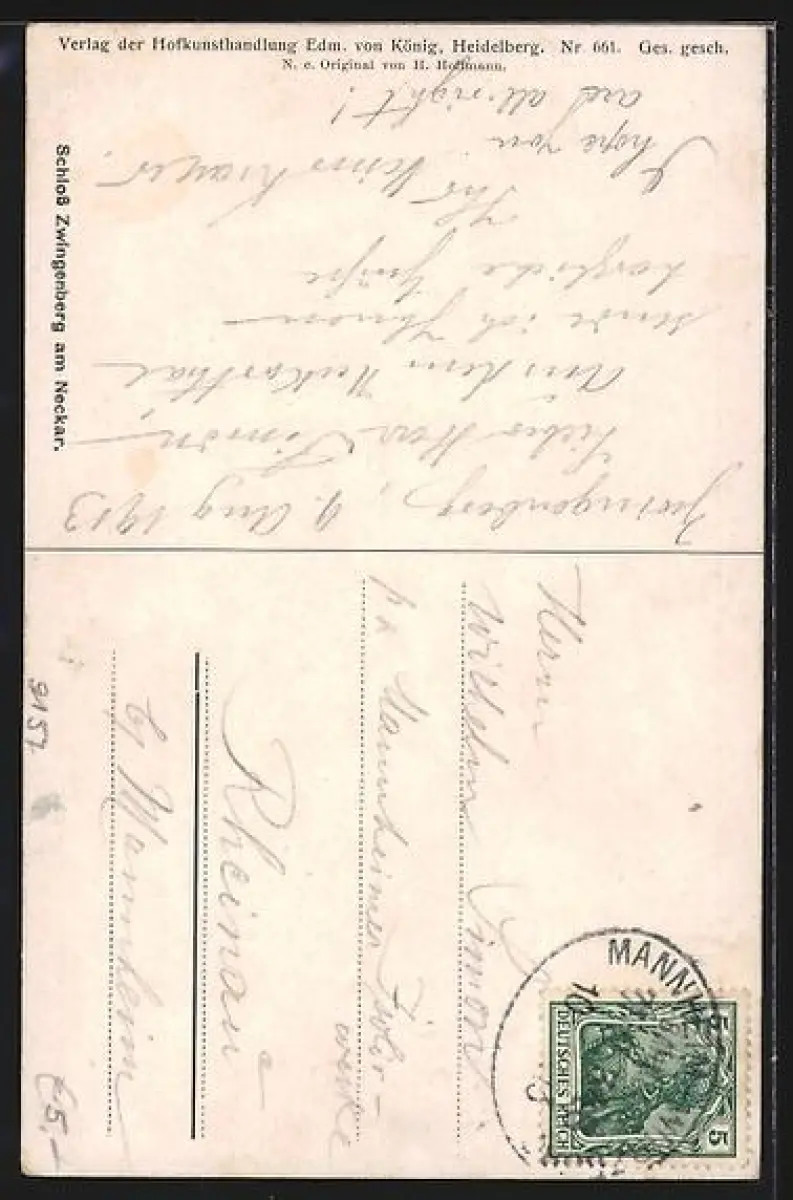 Verlag der Hofkunsthandlung Edm. von König, Heidelberg. Nr 661. Ges. gesch.
N. e. Original von H. Hoffmann.
Schloß Zwingenberg am Neckar.
Zwingenberg, 9. Aug 1913
Lieber Herr Simon,
Aus dem Neckarthal
sende ich Ihnen
herzliche Grüße
Ihr
I hope you
are all right!
Herrn
Wilhelm Simon
Mannheimer Isolir-
werke
Rheinau
b/ Mannheim
9157
€5,-
MANNHEIM
10
DEUTSCHES REICH
5